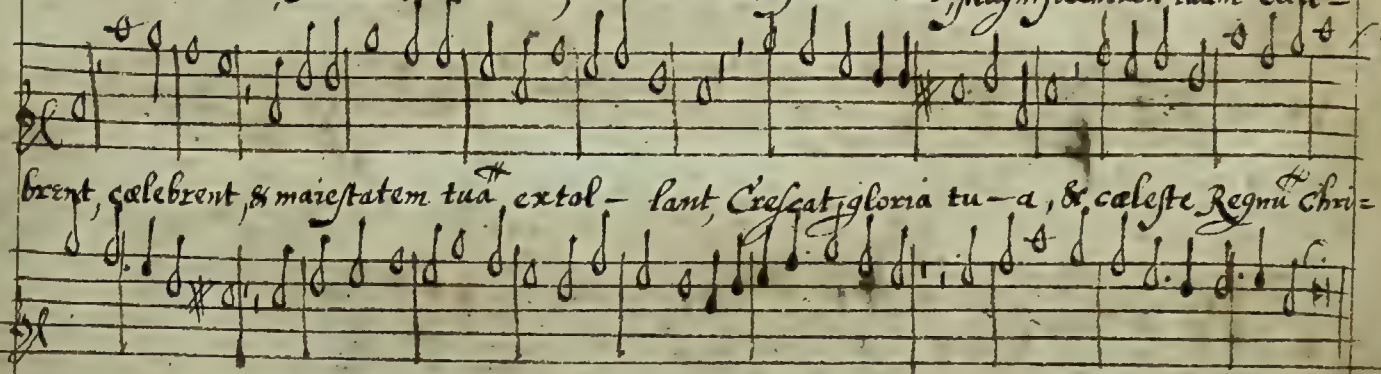 magnificentiam tuam cæle-
brent, cælebrent, & maiestatem tuā extol - lant, Crescat gloria tu - a, & cæleste Regnū Chri=